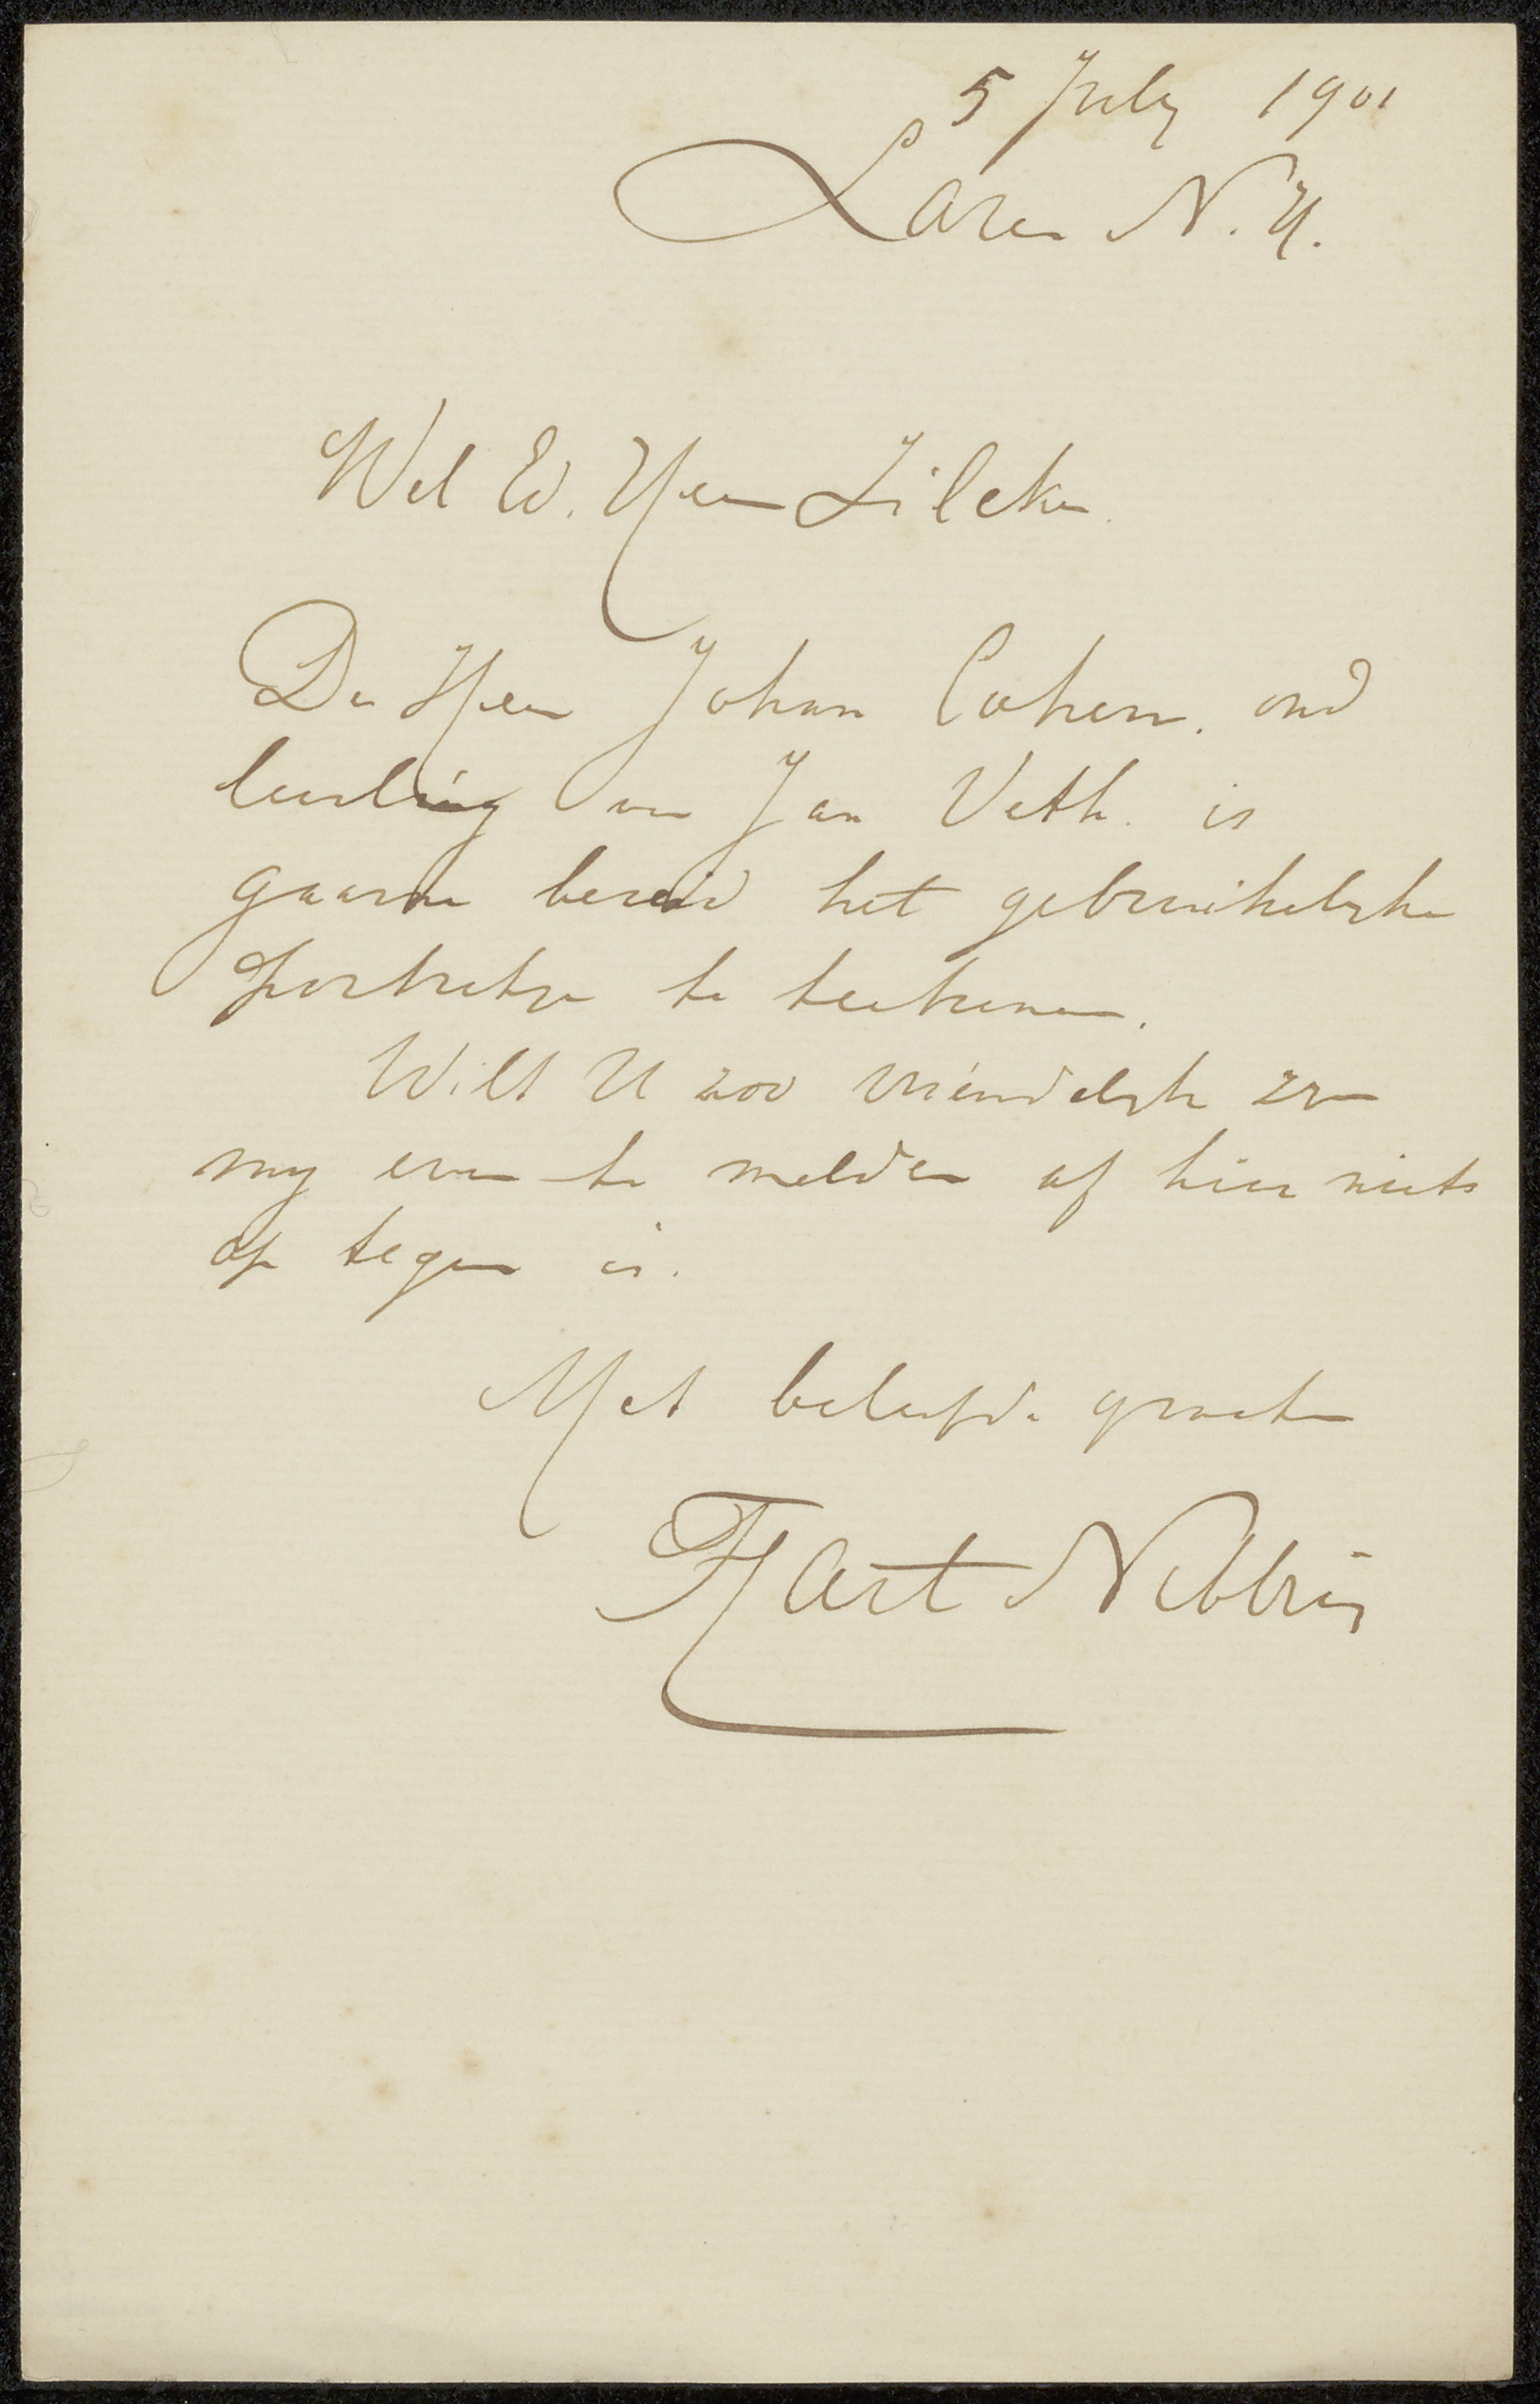 5 July 1901
Laren N.H.
Wel Ed. Heer Zilcken.
De Heer Johan Cohen. oud
leerling van Jan Veth. is
gaarne bereid het gebruikelyke
portretje te teekenen.
Wilt U zoo vriendelyk zyn
my even te melden of hier niets
op tegen is.
Met beleefde groeten
Hart Nibbrig